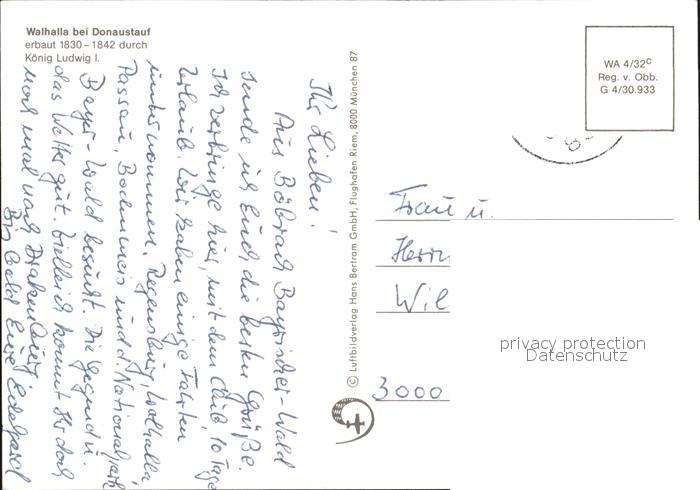 Walhalla bei Donaustauf
erbaut 1830–1842 durch
König Ludwig I.
Ihr Lieben!
Aus Böbrach Bayrischer-Wald
sende ich Euch die besten Grüße.
Ich verbringe hier, mit dem Club 10 Tage
Urlaub. Wir haben einige Fahrten
unternommen. Regensburg, Walhalla
Passau, Bodenmais und d. Nationalpark
Bayr-Wald besucht. Die Gegend u.
das Wetter gut. Vielleicht kommt Ihr doch
noch mal nach Drakenburg.
Bis bald Eure Edelgard
© Luftbildverlag Hans Bertram GmbH, Flughafen Riem, 8000 München 87
WA 4/32c
Reg. v. Obb.
G 4/30.933
Frau u.
Herrn
Wil
3000
privacy protection
Datenschutz